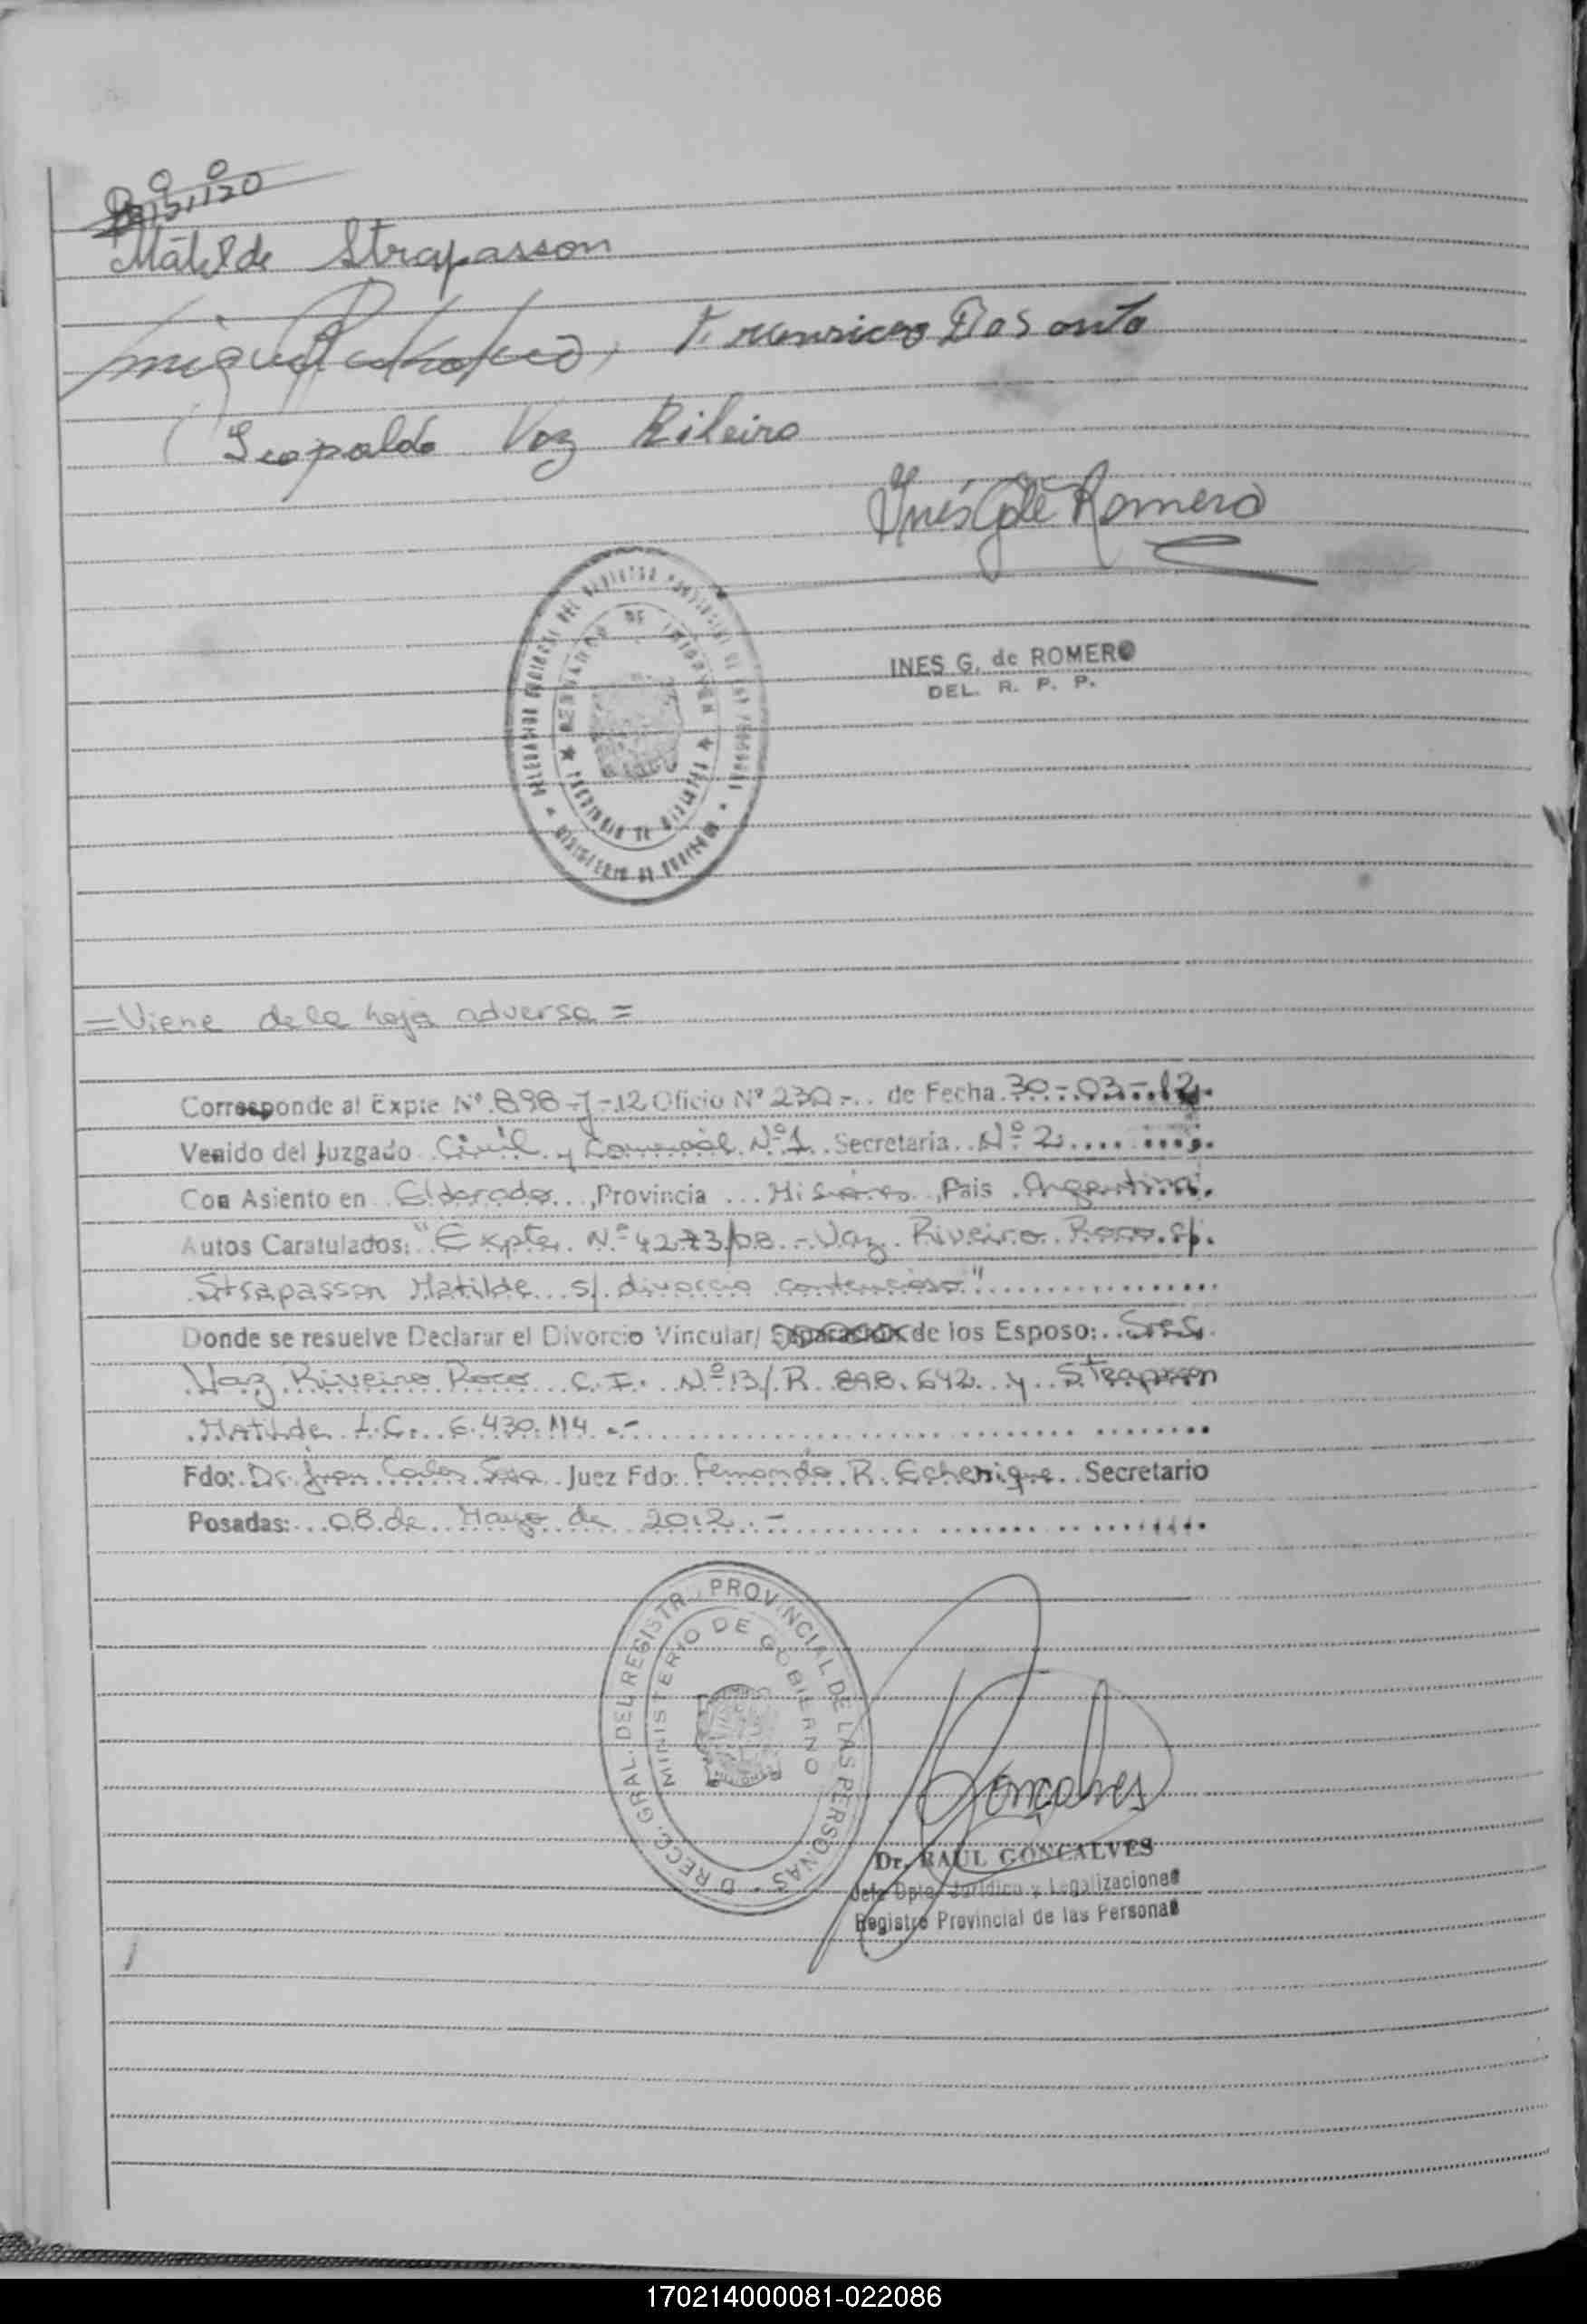 Matilde Strapasson
Francisco Dos onto
Leopoldo Voz Ribeiro
Inés G de Romero
INES G. de ROMERO
DEL. R. P. P.
= Viene de la hoja adversa =
Corresponde al Expte Nº 898-J-12 Oficio Nº 230.-.. de Fecha 30-.03-.12.
Venido del Juzgado Civil y Comercial Nº 1 Secretaria Nº 2
Con Asiento en Eldorado, Provincia Misiones, Pais Argentina.
Autos Caratulados: "Expte. Nº 4273/08.- Vaz Riveiro Roco c/.
Strapasson Matilde s/ divorcio contencioso"
Donde se resuelve Declarar el Divorcio Vincular/ Separacion de los Esposo: Sres.
Vaz Riveiro Roco C.I. Nº 13/R 898.642 y Strapsson
Matilde L.C. 6.430.114.-
Fdo: Dr. Juan Carlos Juez Fdo: Fernando R. Echenique Secretario
Posadas: 08 de Mayo de 2012.-
DIRECC. GRAL. DEL REGISTR. PROVINCIAL DE LAS PERSONAS
MINISTERIO DE GOBIERNO
MISIONES
Goncalves
Dr. RAUL GONCALVES
Jefe Dpto. Juridico y Legalizaciones
Registro Provincial de las Personas
170214000081-022086